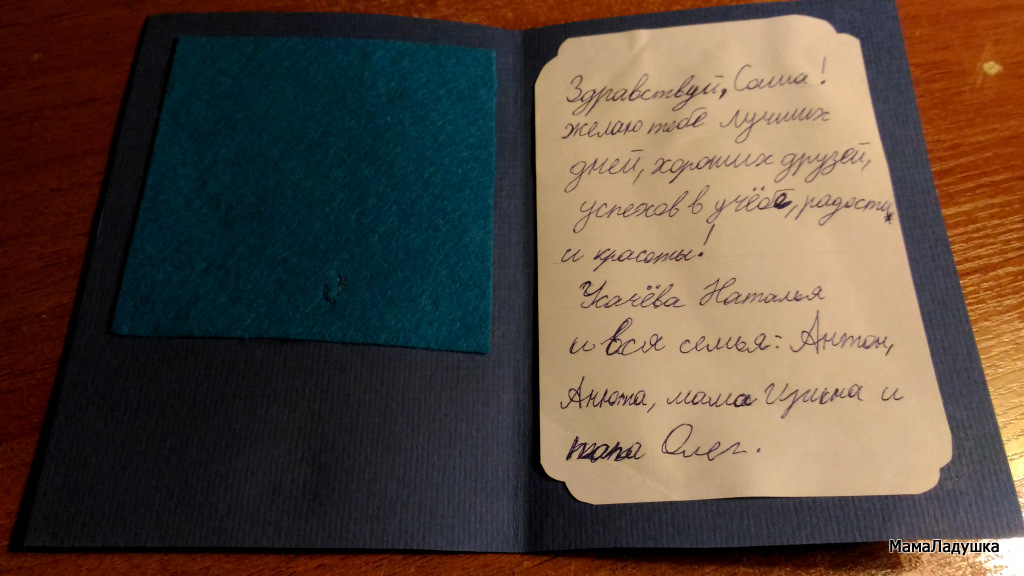 Здравствуй, Саша!
желаю тебе лучших
дней, хороших друзей,
успехов в учёбе, радости
и красоты!
Усачёва Наталья
и вся семья: Антон,
Анюта, мама Ирина и
папа Олег.
МамаЛадушка